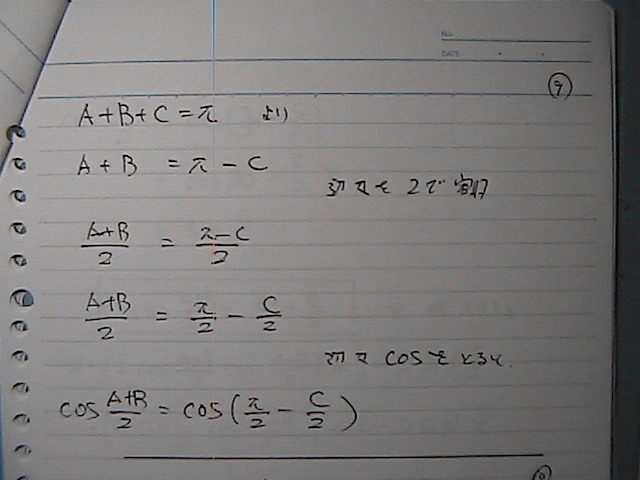 No.
DATE
9
A+B+C=π より
A+B = π-C
両辺を2で割
(A+B)/2 = (π-C)/2
(A+B)/2 = π/2 - C/2
両辺 cosをとると
cos (A+B)/2 = cos(π/2 - C/2)